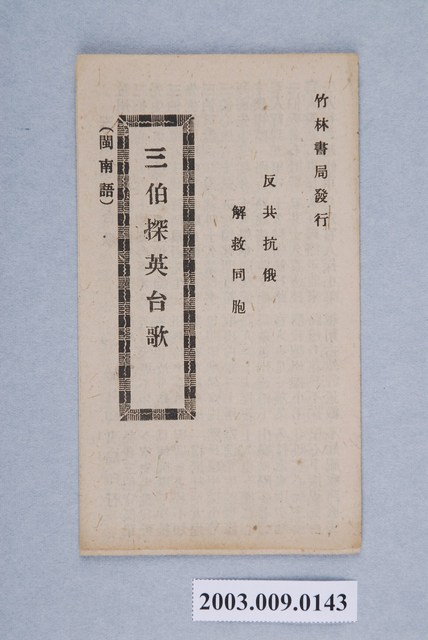 竹林書局發行
反共抗俄
解救同胞
三伯探英台歌
（閩南語）
2003.009.0143